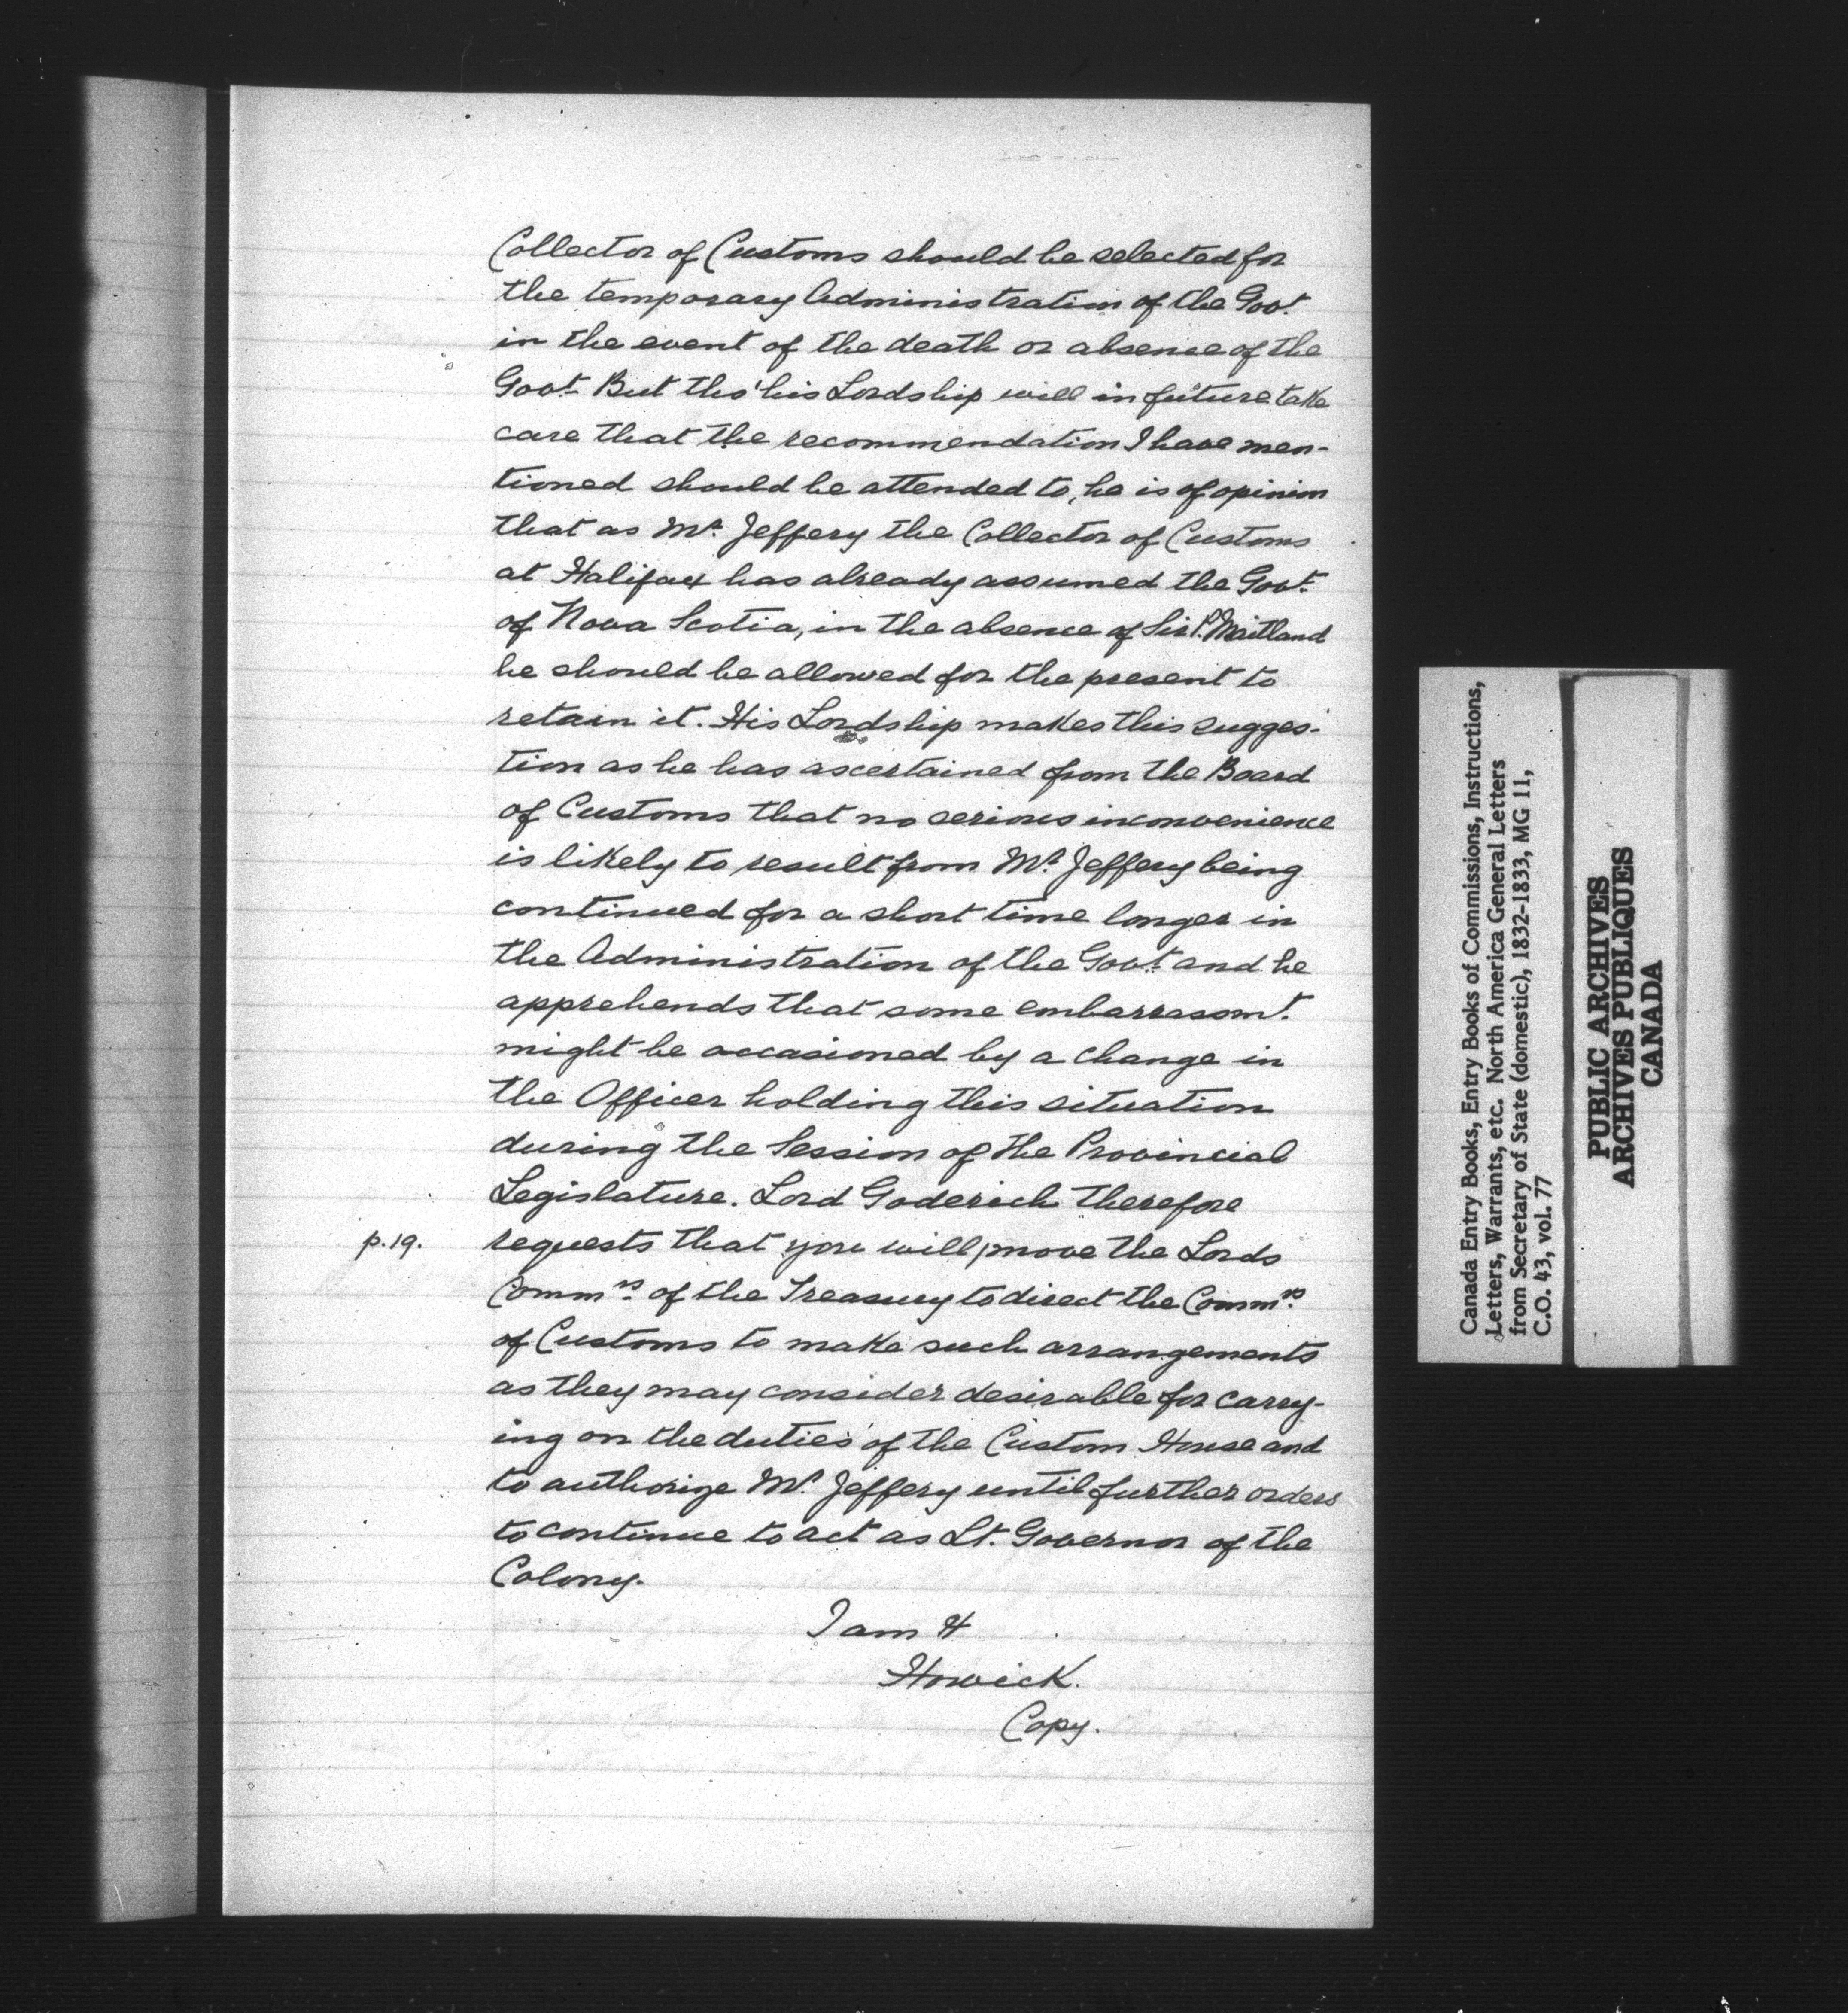 Collector of Customs should be selected for
the temporary Administration of the Govt.
in the event of the death or absence of the
Govt. But tho' his Lordship will in future take
care that the recommendation I have men-
tioned should be attended to, he is of opinion
that as Mr. Jeffery the Collector of Customs
at Halifax has already assumed the Govt.
of Nova Scotia, in the absence of Sir P. Maitland
he should be allowed for the present to
retain it. His Lordship makes this sugges-
tion as he has ascertained from the Board
of Customs that no serious inconvenience
is likely to result from Mr. Jeffery being
continued for a short time longer in
the Administration of the Govt. and he
apprehends that some embarrassmt.
might be occasioned by a change in
the Officer holding this situation
during the Session of the Provincial
Legislature. Lord Goderich therefore
p.19. requests that you will move the Lords
Commrs. of the Treasury to direct the Commrs.
of Customs to make such arrangements
as they may consider desirable for carry-
ing on the duties of the Custom House and
to authorize Mr. Jeffery until further orders
to continue to act as Lt. Governor of the
Colony.
I am &
Howick.
Copy.
Canada Entry Books, Entry Books of Commissions, Instructions,
Letters, Warrants, etc. North America General Letters
from Secretary of State (domestic), 1832-1833, MG 11,
C.O. 43, vol. 77
PUBLIC ARCHIVES
ARCHIVES PUBLIQUES
CANADA